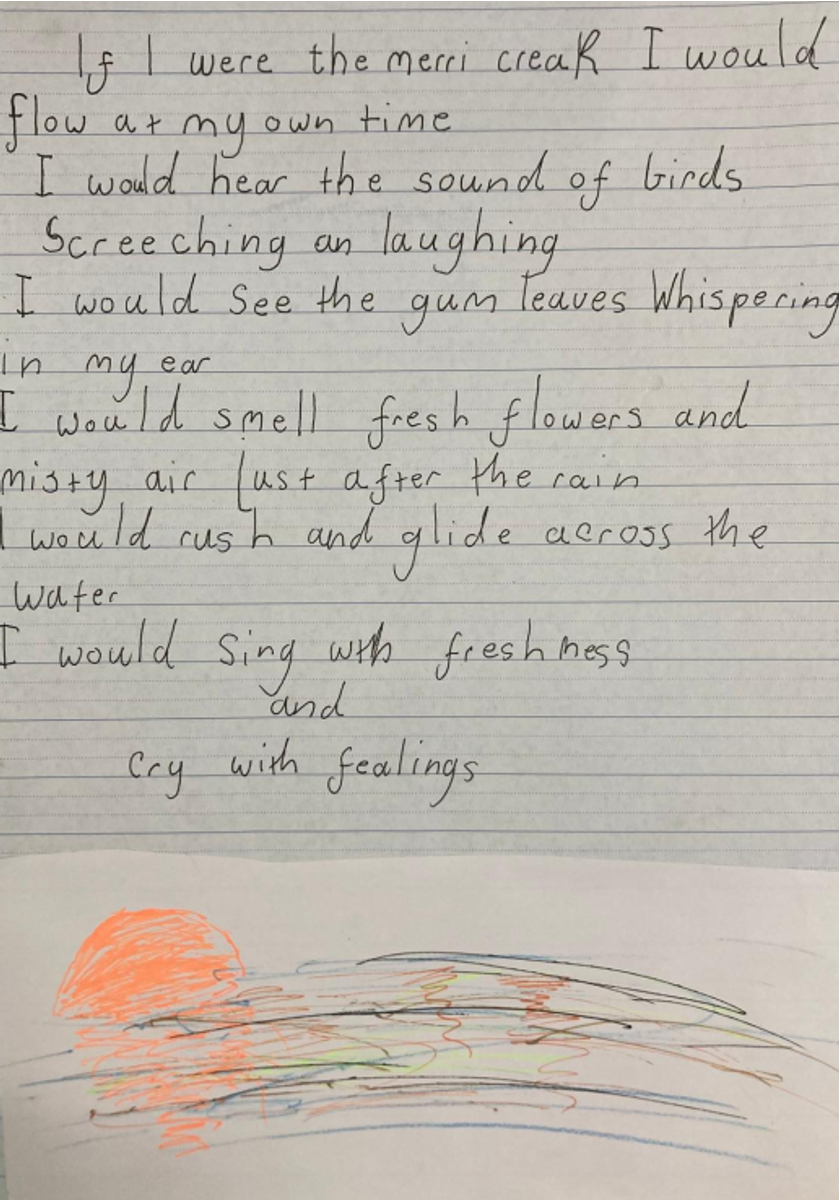 If I were the merri creak I would
flow at my own time
I would hear the sound of birds
Screeching an laughing
I would See the gum leaves Whispering
in my ear
I would smell fresh flowers and
misty air Just after the rain
I would rush and glide across the
water
I would Sing with freshness
and
Cry with fealings